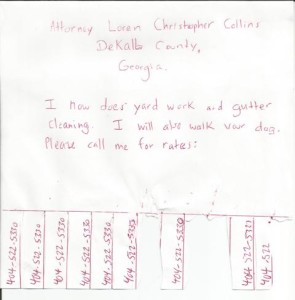 Attorney Loren Christopher Collins
DeKalb County,
Georgia.
I now does yard work and gutter
cleaning. I will also walk your dog.
Please call me for rates:
404-522-5330
404-522-5330
404-522-5330
404-522-5330
404-522-5330
404-522-5330
404-522-5330
404-522-5330
404-522